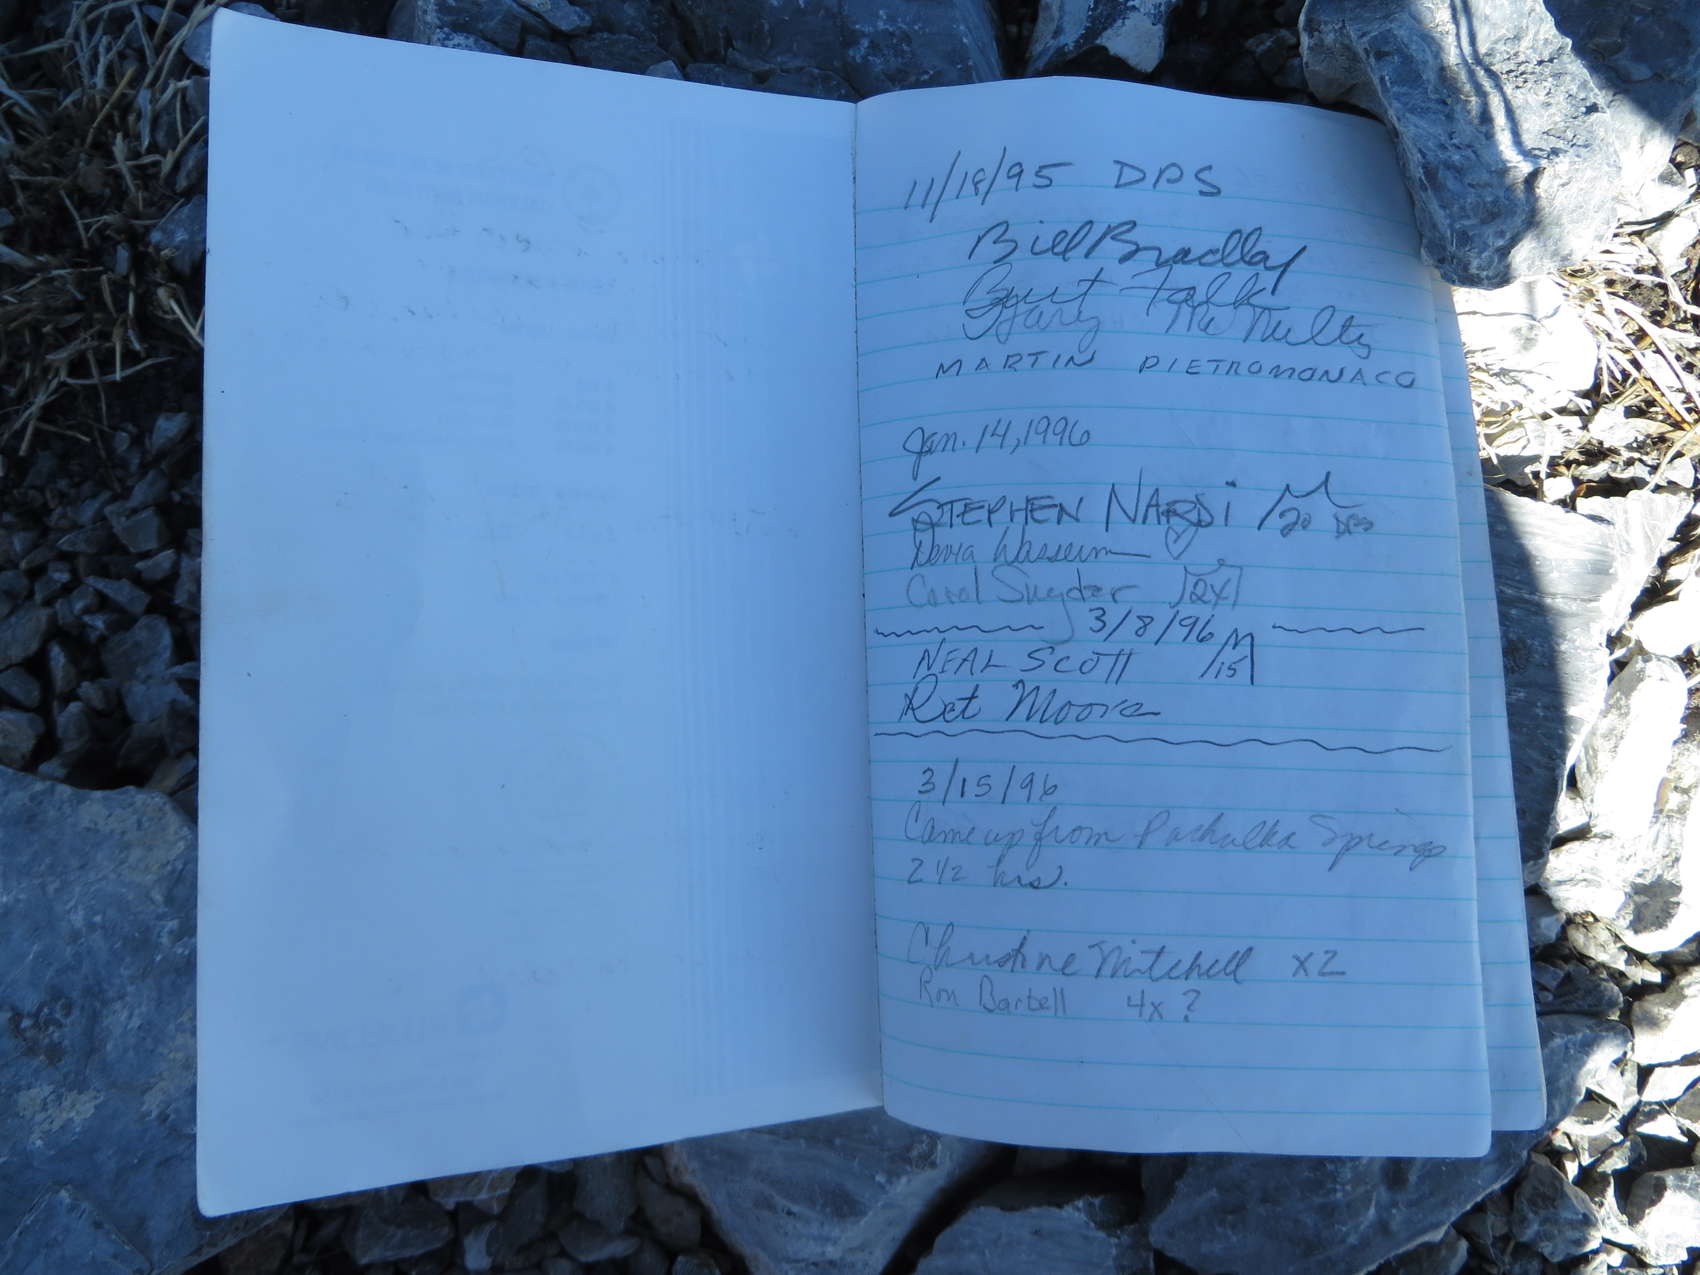 11/18/95 DPS
Bill Bradley
Burt Falk
Gary McNulty
MARTIN PIETROMONACO
Jan. 14, 1996
STEPHEN NARDI 20 DPS
Carol Snyder 2x
3/8/96
NEAL SCOTT 15
Moore
3/15/96
Came up from Pachalka Springs
2 1/2 hrs.
Christine Mitchell x2
Ron Bartell 4x ?